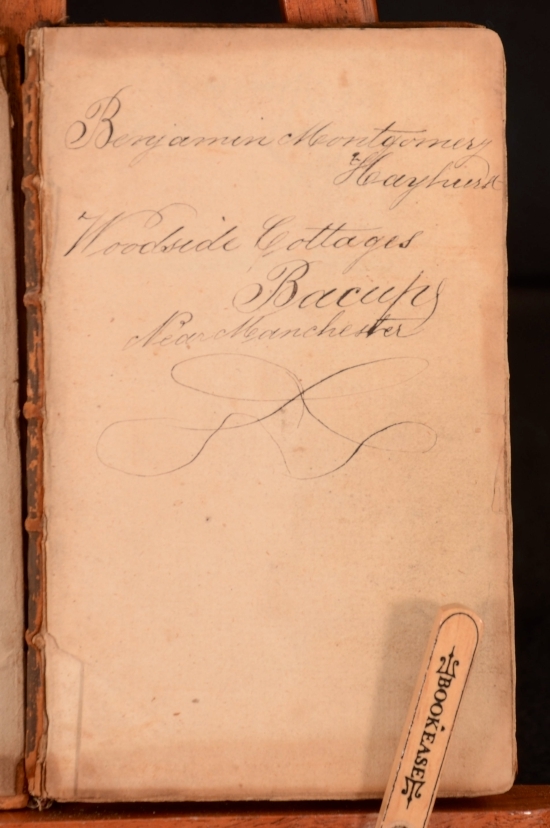 Benjamin Montgomery
Hayhurst
Woodside Cottages
Bacup
Near Manchester
BOOKEASE